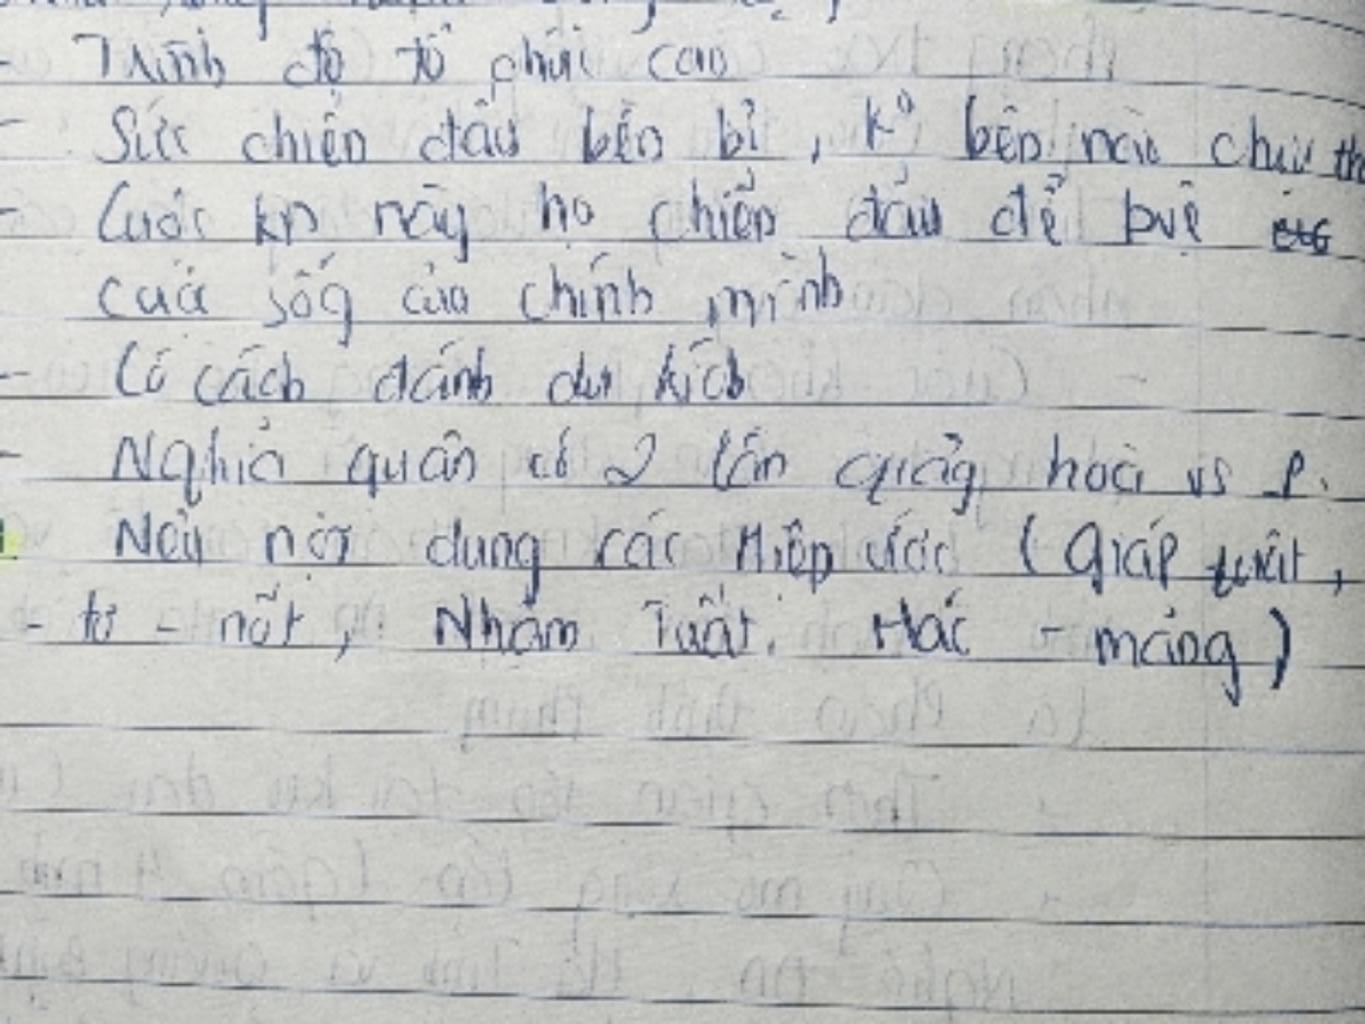 - Trình độ tổ chức cao
- Sức chiến đấu bền bỉ, ko bên nào chịu th
- Cuộc kn này họ chiến đấu để bvệ
cuộc sống của chính mình
- Có cách đánh du kích
- Nghĩa quân có 2 lần giảng hoà vs P.
Nêu nội dung các Hiệp ước (Giáp tuất,
- tơ - nốt, Nhâm Tuất, Hác - măng)